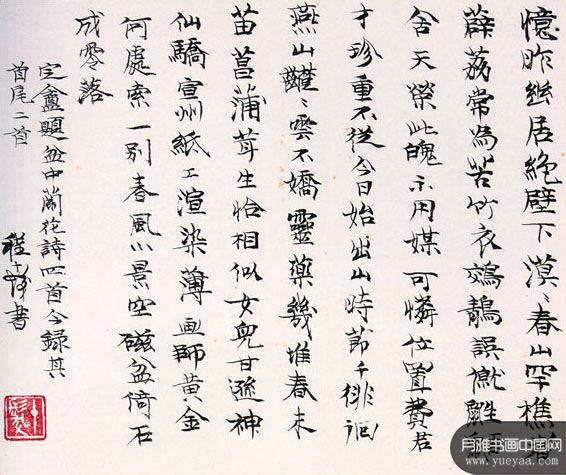 憶昨幽居絕壁下漠〻春山罕樵者
薜荔常為苦竹衣鵁鶄誤僦鼪
舍天榮此魄不用媒可憐位置費君
才珍重不從今日始出山時節千徘徊
燕山〻雲不嬌靈藥幾堆春未
苗菖蒲茸生恰相似女兒甘遜神
仙驕宣州紙工渲染薄画師黃金
何處索一別春風小景空磁盆倚石
成零落
定盦題盆中蘭花詩四首今錄其
首尾二首
程十髮書
月雅书画中国网
www.yueyaa.com